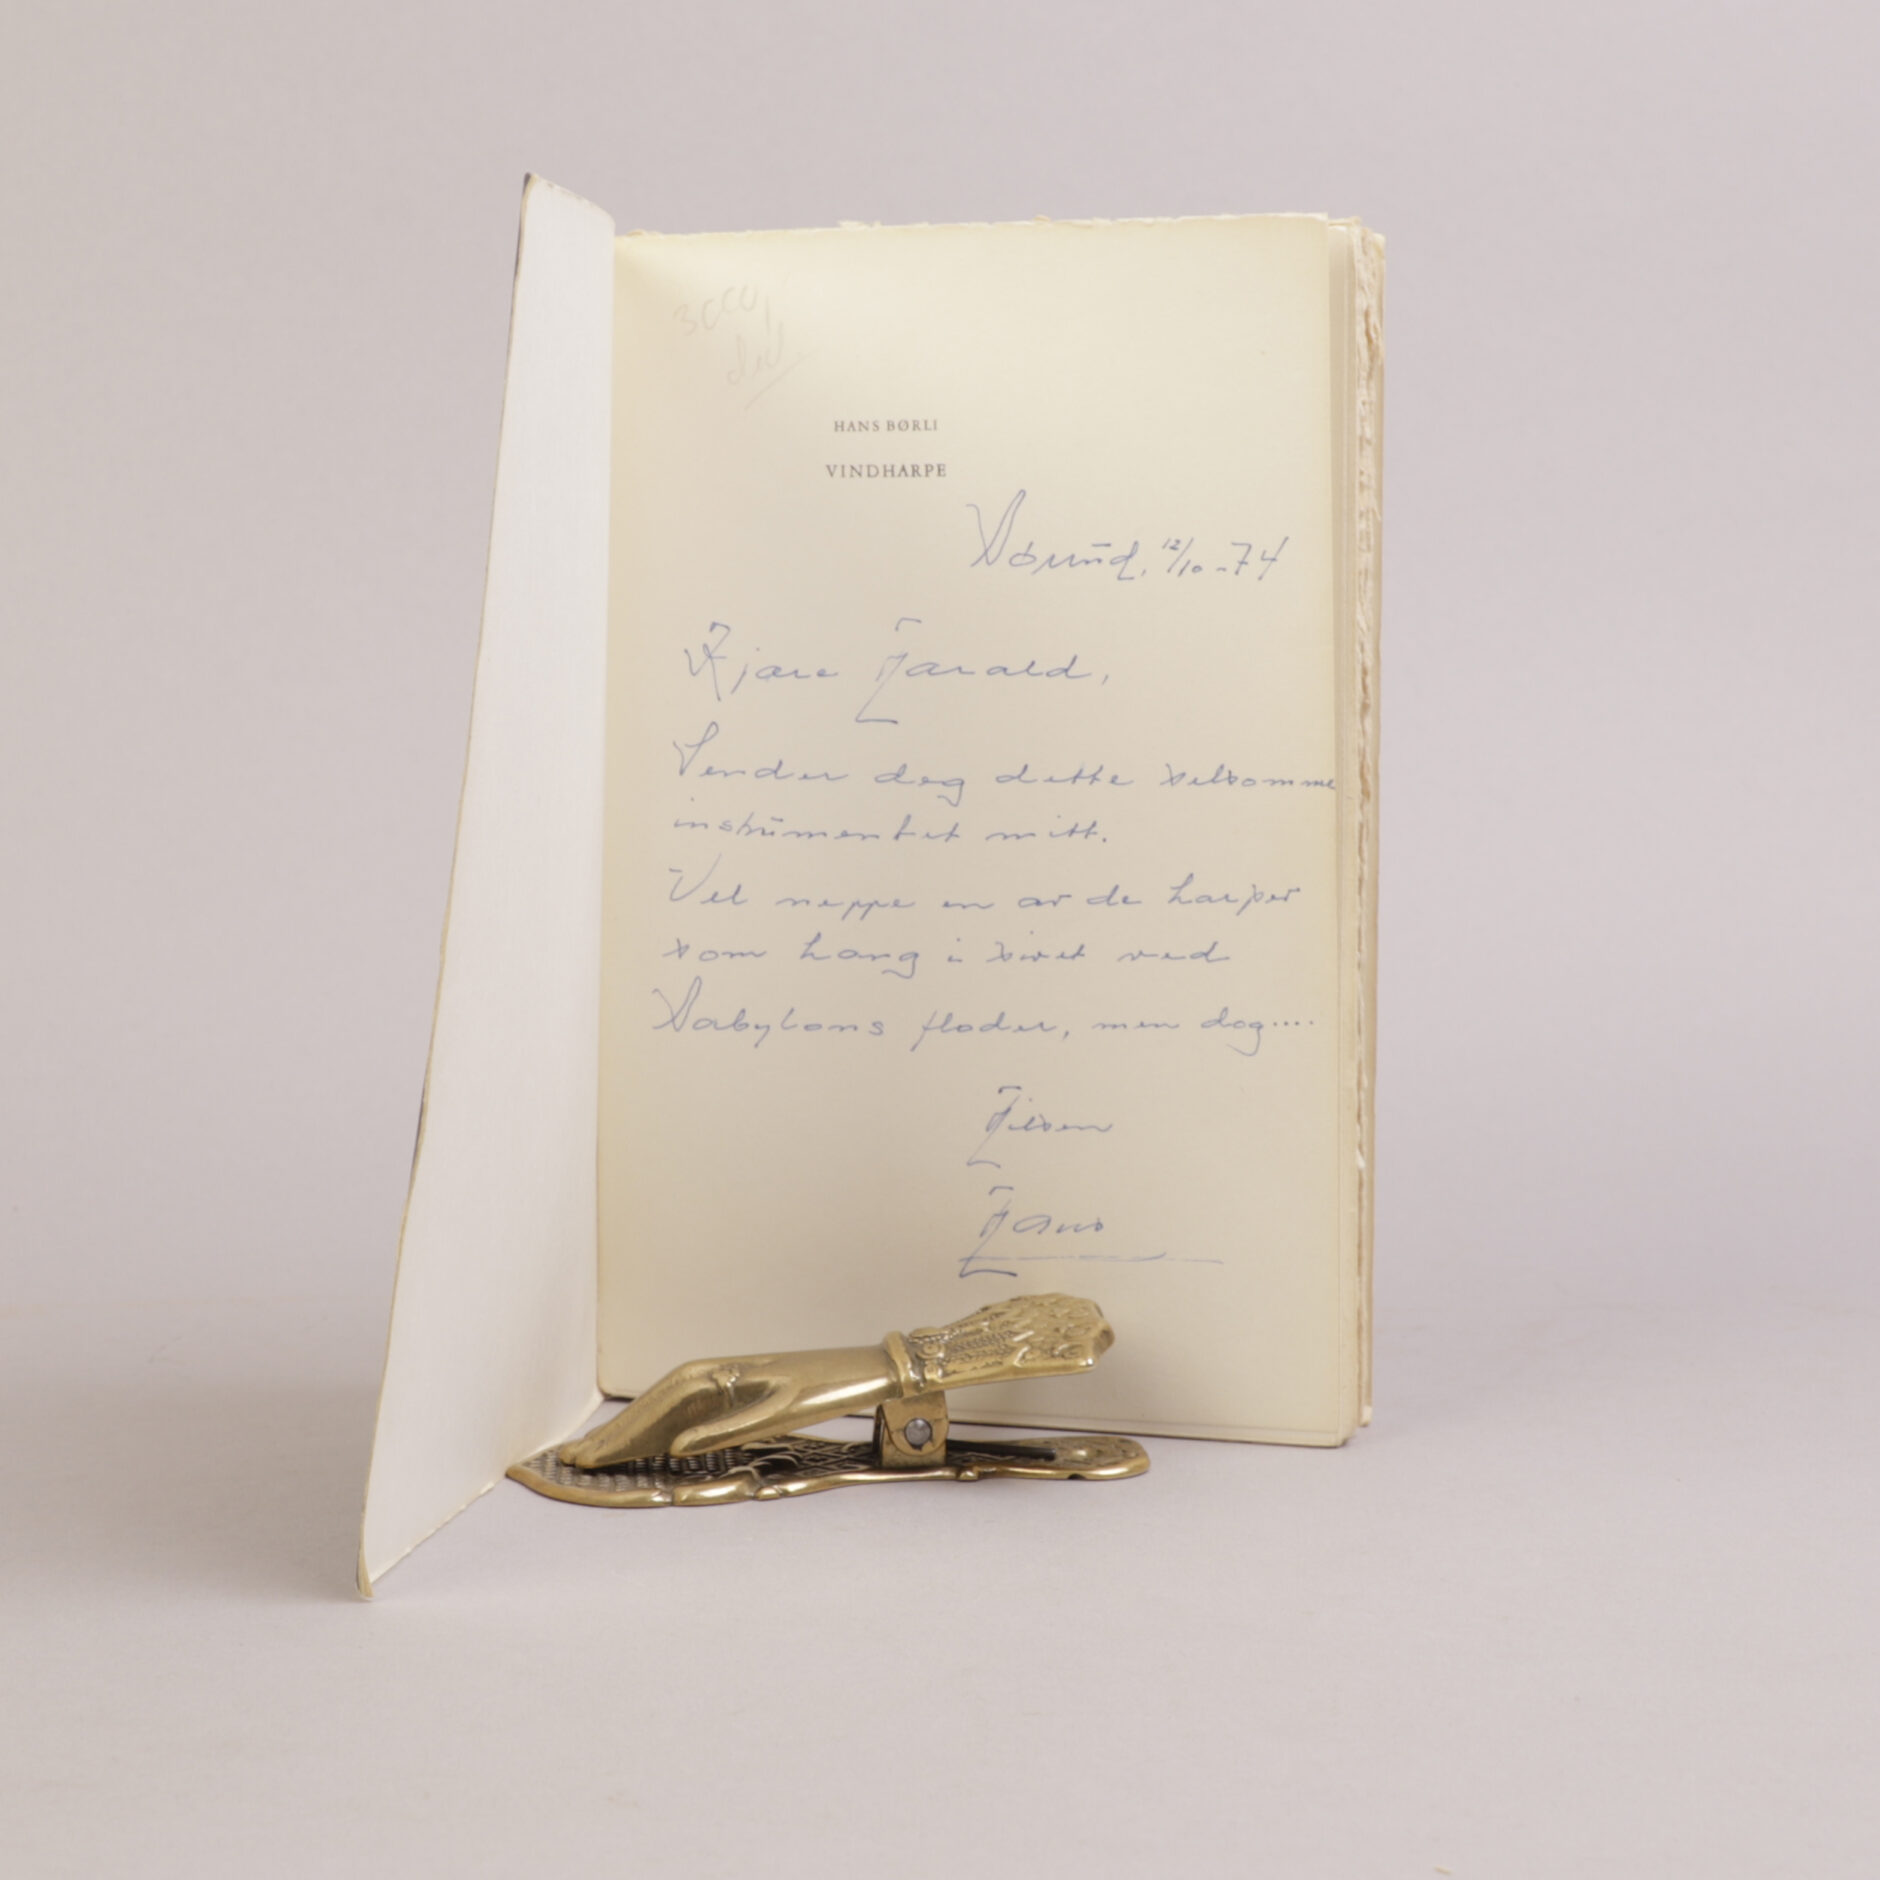 3000,-
ded.
HANS BØRLI
VINDHARPE
Børud, 12/10-74
Kjære Harald,
Sender deg dette selsomme
instrumentet mitt.
Vel neppe en av de harper
som hang i sivet ved
Babylons floder, men dog....
Hilsen
Hans